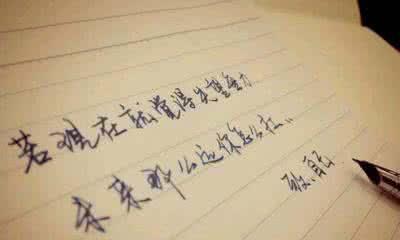 若现在就觉得失望无力
未来那么远你怎么扛..